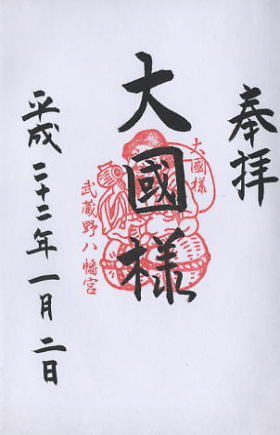 奉拝
大國様
大國様
武蔵野八幡宮
平成二十二年一月二日